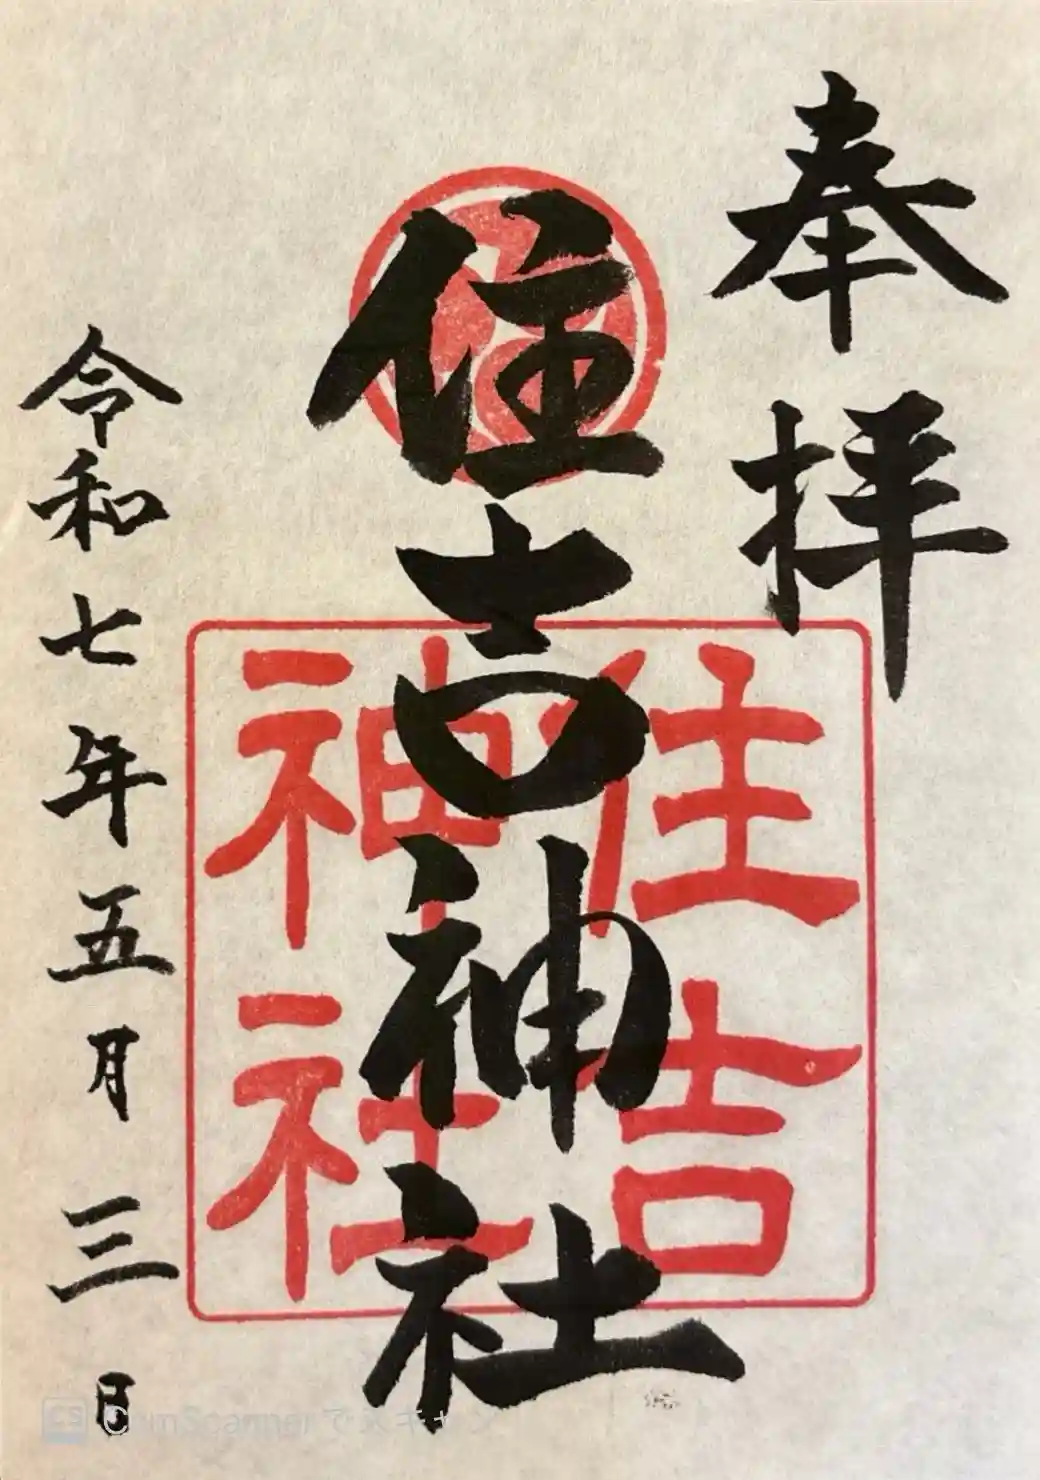 奉拝
住吉神社
住吉
神社
令和七年五月三日
CS CamScannerでスキャン